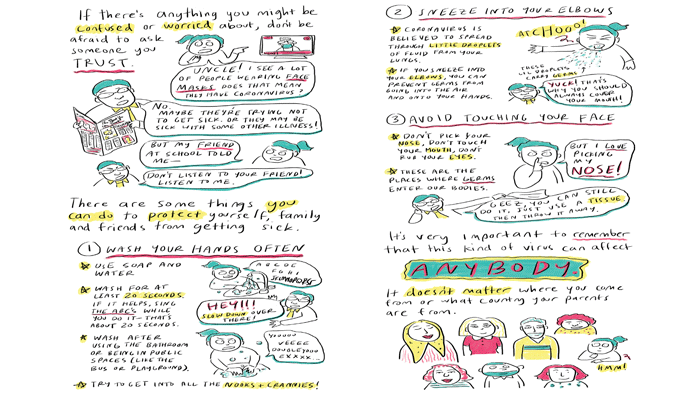 If there's anything you might be
confused or worried about, don't be
afraid to ask
someone you
TRUST.
UNCLE! I SEE A LOT
OF PEOPLE WEARING FACE
MASKS. DOES THAT MEAN
THEY HAVE CORONAVIRUS?
NO.
MAYBE THEY'RE TRYING NOT
TO GET SICK. OR THEY MAY BE
SICK WITH SOME OTHER ILLNESS!
BUT MY FRIEND
AT SCHOOL TOLD
ME—
DON'T LISTEN TO YOUR FRIEND!
LISTEN TO ME.
There are some things you
can do to protect yourself, family
and friends from getting sick.
1 WASH YOUR HANDS OFTEN
USE SOAP AND
WATER
WASH FOR AT
LEAST 20 SECONDS.
IF IT HELPS, SING
THE ABC'S WHILE
YOU DO IT—THAT'S
ABOUT 20 SECONDS.
WASH AFTER
USING THE BATHROOM
OR BEING IN PUBLIC
SPACES (LIKE THE
BUS OR PLAYGROUND)
TRY TO GET INTO ALL THE NOOKS + CRANNIES!
ABCDE
FGHI
HEY!!!
SLOW DOWN OVER
THERE!
2 SNEEZE INTO YOUR ELBOWS
CORONAVIRUS IS
BELIEVED TO SPREAD
THROUGH LITTLE DROPLETS
OF FLUID FROM YOUR
LUNGS.
IF YOU SNEEZE INTO
YOUR ELBOWS, YOU CAN
PREVENT GERMS FROM
GOING INTO THE AIR
AND ONTO YOUR HANDS.
ATCHOOO!
THESE
LIL DROPLETS
CARRY GERMS
YUCK! THAT'S
WHY YOU SHOULD
ALWAYS COVER
YOUR MOUTH!
3 AVOID TOUCHING YOUR FACE
DON'T PICK YOUR
NOSE, DON'T TOUCH
YOUR MOUTH, DON'T
RUB YOUR EYES.
THESE ARE THE
PLACES WHERE GERMS
ENTER OUR BODIES.
BUT I LOVE
PICKING
MY
NOSE!
GEEZ, YOU CAN STILL
DO IT. JUST USE A TISSUE.
THEN THROW IT AWAY.
It's very important to remember
that this kind of virus can affect
ANYBODY.
It doesn't matter where you come
from or what country your parents
are from.
HMM!